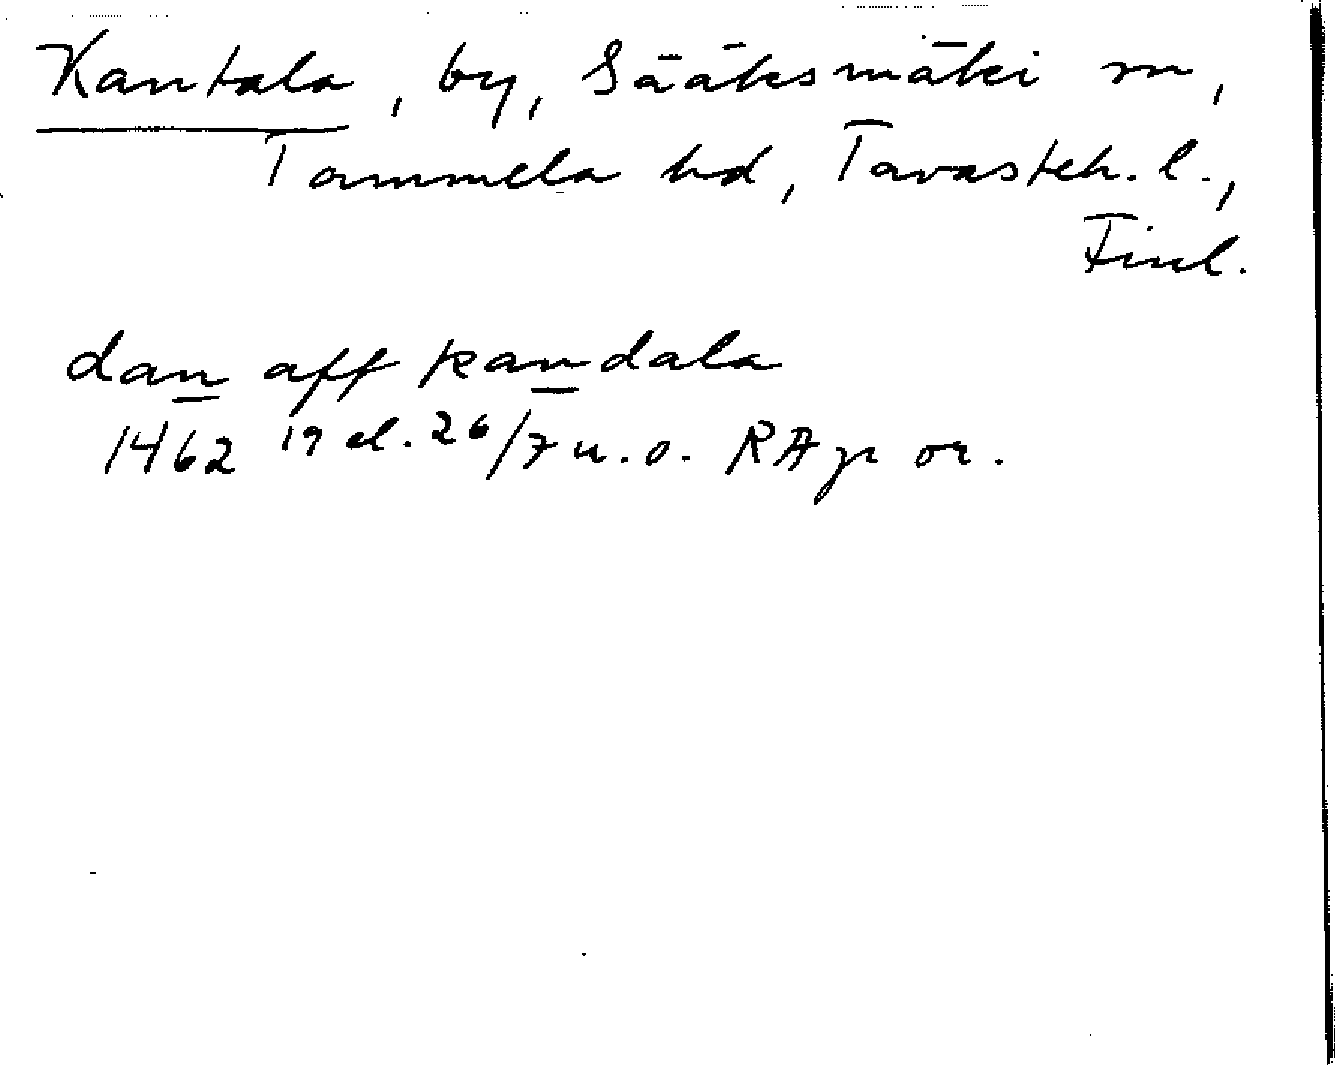 Kantala, by, Sääksmäki sn,
Tammela hd, Tavasteh. l.,
Finl.
dan aff kandala
1462 19 el. 26/7 u.o. RAp or.